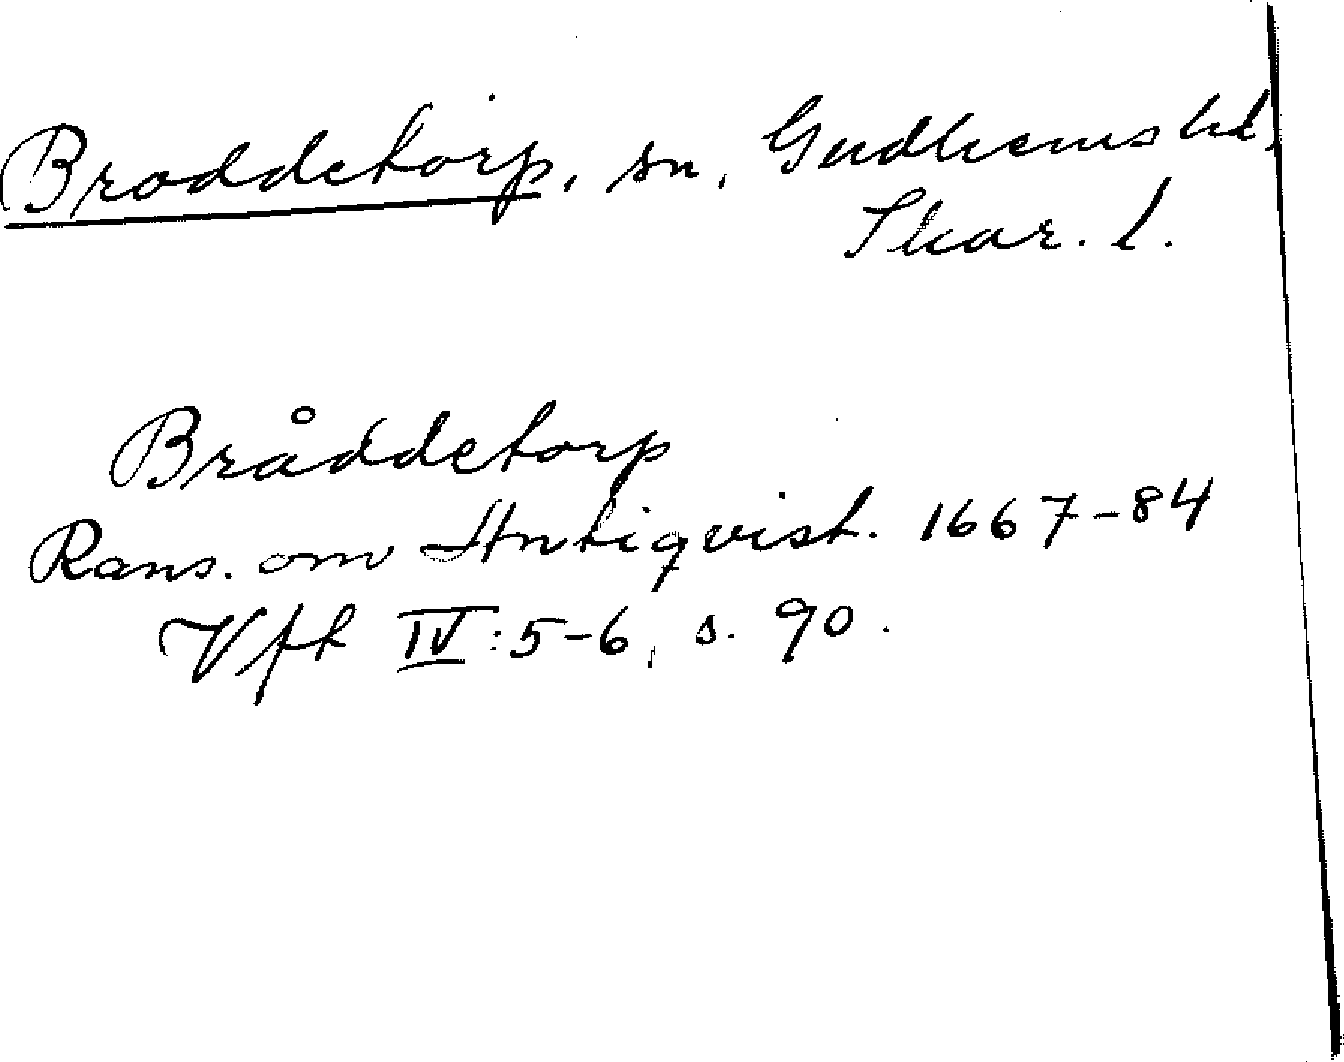 Broddetorp, sn, Gudhems hd,
Skar. l.
Bråddetorp
Rans. om Antiqvist. 1667-84
Vft IV:5-6, s. 90.